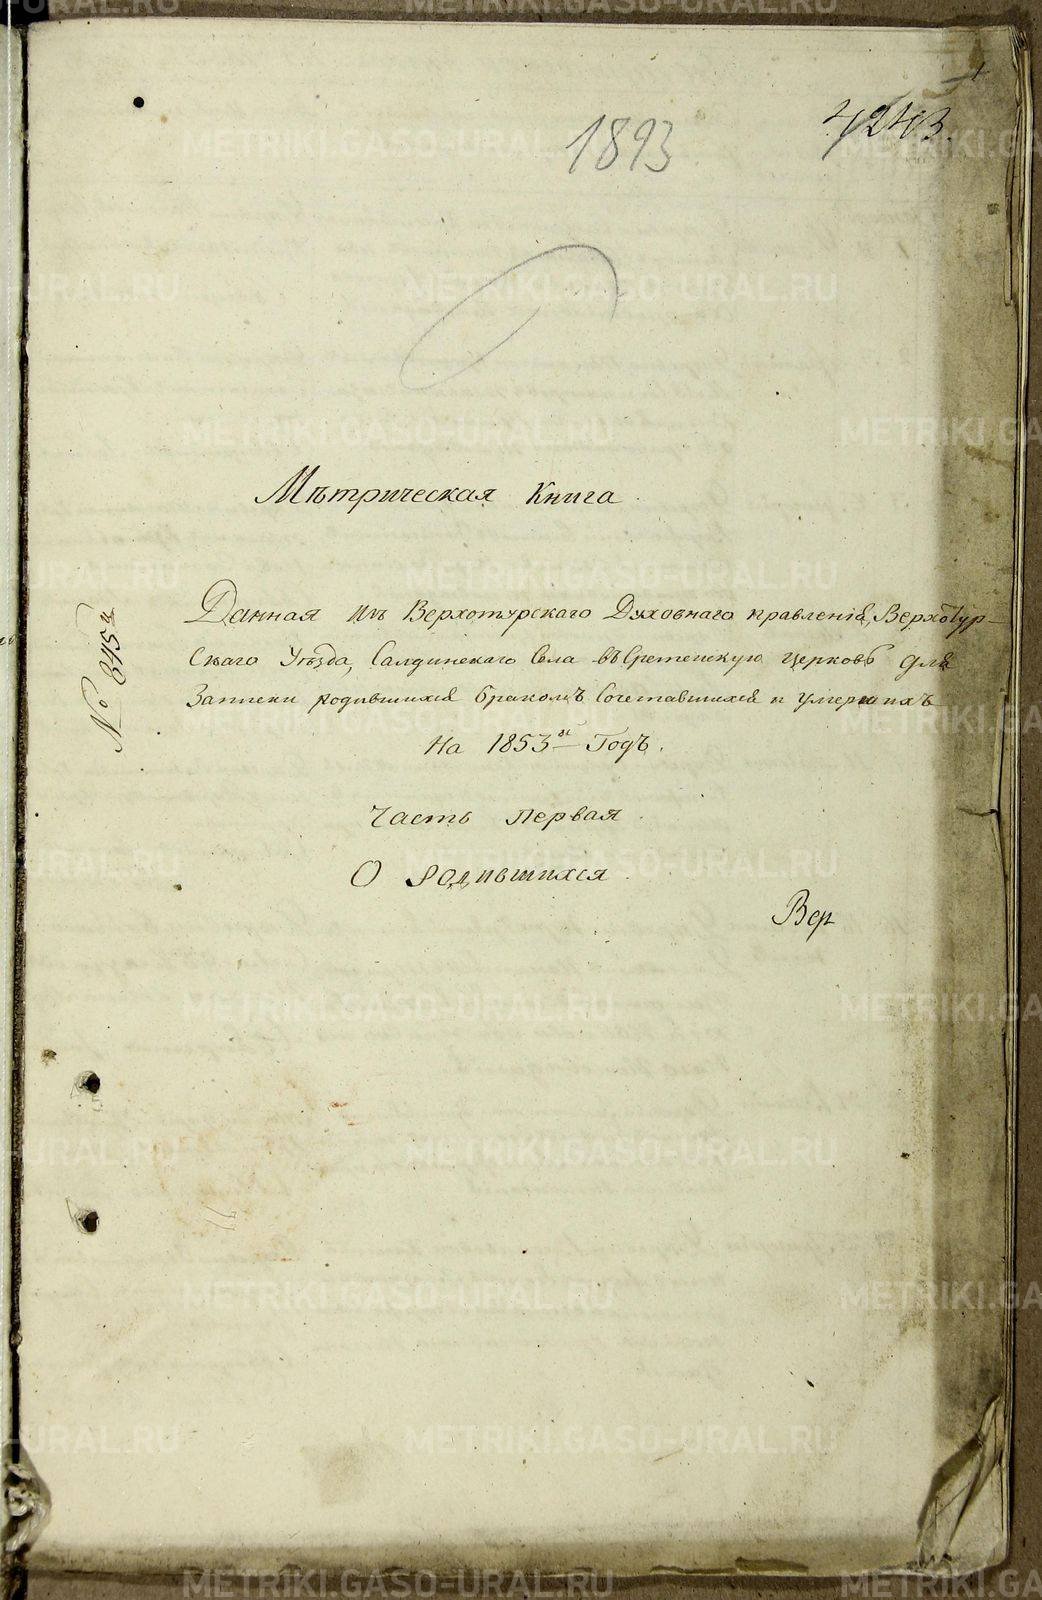 1
4243.
1893
Мѣтрическая Книга.
Данная изъ Верхотурскаго Духовнаго правленія, Верхотур-
скаго Уѣзда, Салдинскаго Села въ Сретенскую церковь для
Записки родившихся бракомъ Сочетавшихся и умершихъ
На 1853й Годъ.
Часть Первая.
О родившихся.
Вер
METRIKI.GASO-URAL.RU